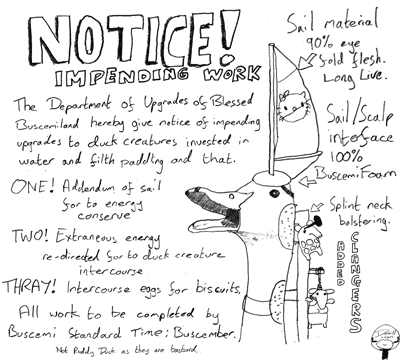 NOTICE!
IMPENDING WORK
The Department of Upgrades of Blessed
Buscemiland hereby give notice of impending
upgrades to duck creatures invested in
water and filth paddling and that.
ONE! Addendum of sail
for to energy
conserve
TWO! Extraneous energy
re-directed for to duck creature
intercourse
THRAY! Intercourse eggs for biscuits.
All work to be completed by
Buscemi Standard Time: Buscember.
Not Ruddy Duck as they are bastard.
Sail material
90% eye
fold flesh.
Long Live.
Sail/Scalp
interface
100%
BuscemiFoam
Splint neck
bolstering.
ADDED
CLANGERS